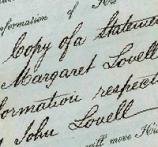 formation of His
Copy of a Statemen
Margaret Lovell
formation respect
John Lovell
will move His